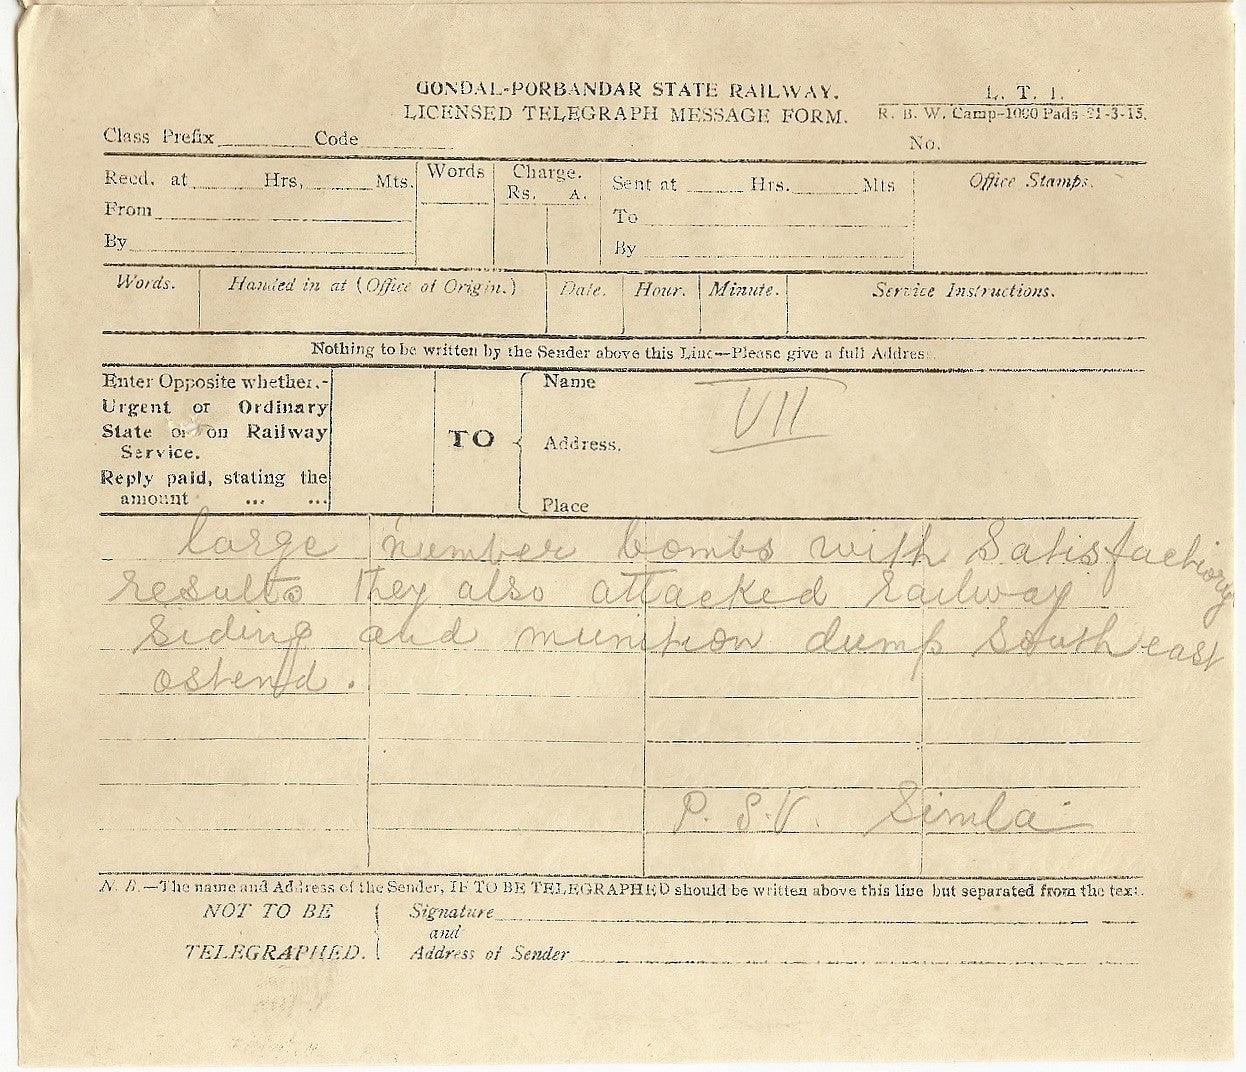 GONDAL-PORBANDAR STATE RAILWAY.
LICENSED TELEGRAPH MESSAGE FORM.
L. T. 1.
R. B. W. Camp-1000 Pads 21-3-15.
Class Prefix Code No.
Recd. at Hrs, Mts. Words Charge. Sent at Hrs. Mts Office Stamps.
Rs. A.
From To
By By
Words. Handed in at (Office of Origin.) Date. Hour. Minute. Service Instructions.
Nothing to be written by the Sender above this Line—Please give a full Address.
Enter Opposite whether.-
Urgent or Ordinary
State or on Railway
Service.
Reply paid, stating the
amount ... ...
TO
Name
VII
Address.
Place
large number bombs with Satisfactory
results they also attacked railway
siding and munition dump South east
ostend.
P. S. V. Simla
N. B.—The name and Address of the Sender, IF TO BE TELEGRAPHED should be written above this line but separated from the text.
NOT TO BE Signature
and
TELEGRAPHED. Address of Sender